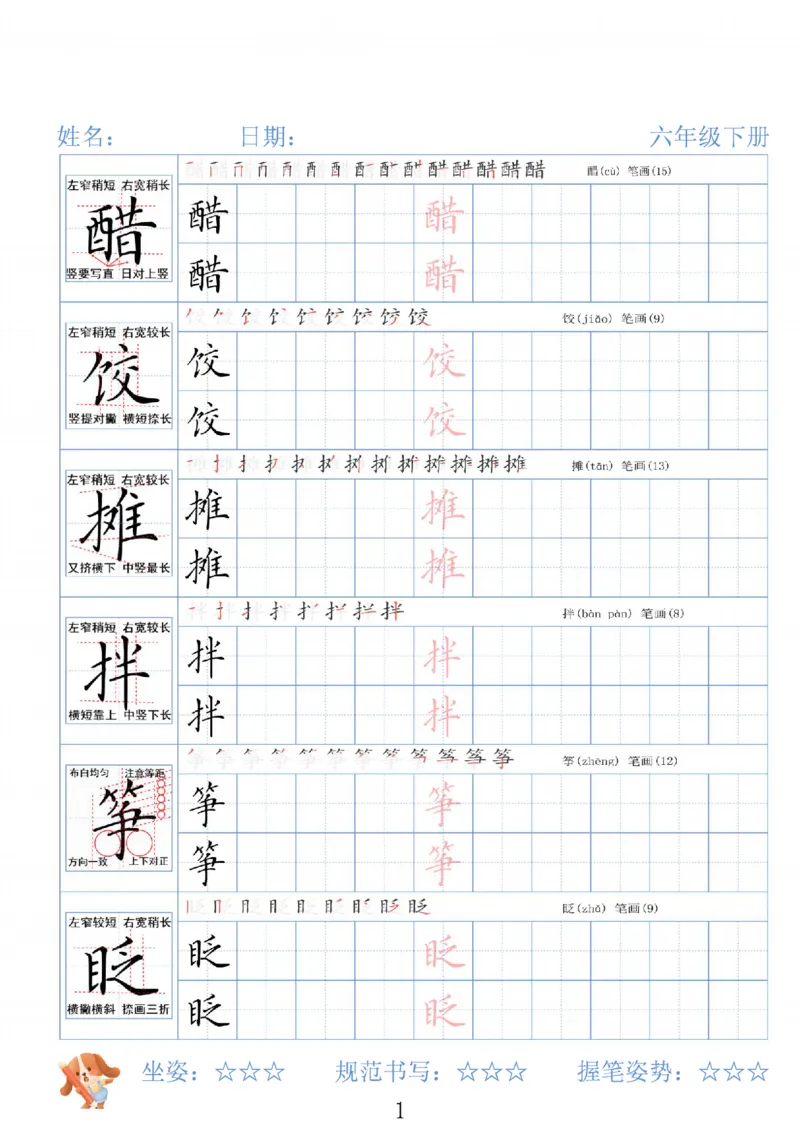 姓名： 日期： 六年级下册
醋(cù) 笔画(15)
左窄稍短 右宽稍长
醋
竖要写直 日对上竖
醋 醋
醋 醋
饺(jiǎo) 笔画(9)
左窄稍短 右宽较长
饺
竖提对撇 横短捺长
饺 饺
饺 饺
摊(tān) 笔画(13)
左窄稍短 右宽较长
摊
又挤横下 中竖最长
摊 摊
摊 摊
拌(bàn pàn) 笔画(8)
左窄稍短 右宽较长
拌
横短靠上 中竖下长
拌 拌
拌 拌
筝(zhēng) 笔画(12)
布白均匀 注意等距
筝
方向一致 上下对正
筝 筝
筝 筝
眨(zhǎ) 笔画(9)
左窄较短 右宽稍长
眨
横撇横斜 捺画三折
眨 眨
眨 眨
坐姿：☆☆☆ 规范书写：☆☆☆ 握笔姿势：☆☆☆
1